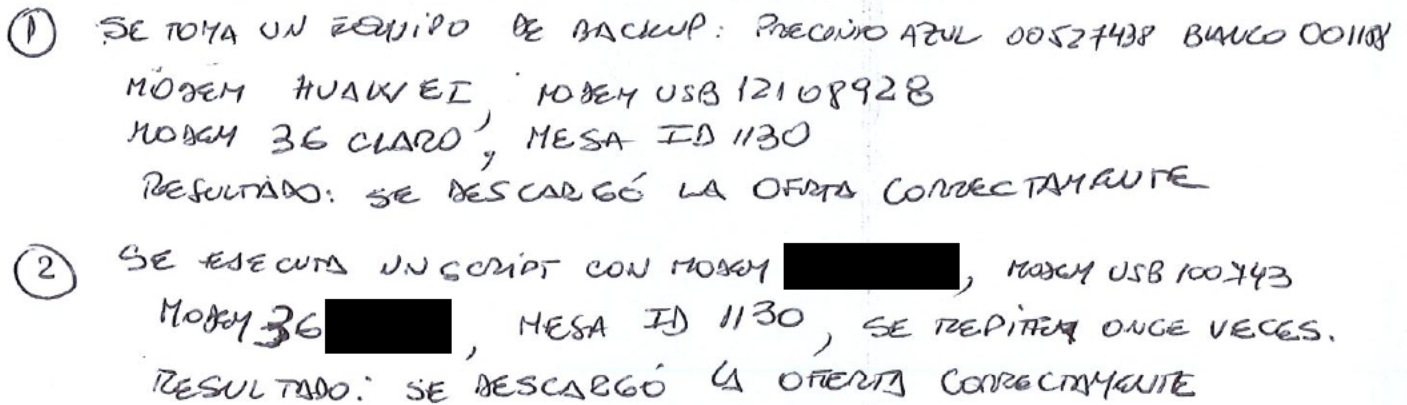 ① SE TOMA UN EQUIPO DE BACKUP: PRECINTO AZUL 00527438 BLANCO 001188
MODEM HUAWEI, MODEM USB 12108928
MODEM 3G CLARO, MESA ID 1130
RESULTADO: SE DESCARGÓ LA OFERTA CORRECTAMENTE
② SE EJECUTA UN SCRIPT CON MODEM , MODEM USB 100743
MODEM 3G , MESA ID 1130, SE REPITEN ONCE VECES.
RESULTADO: SE DESCARGÓ LA OFERTA CORRECTAMENTE